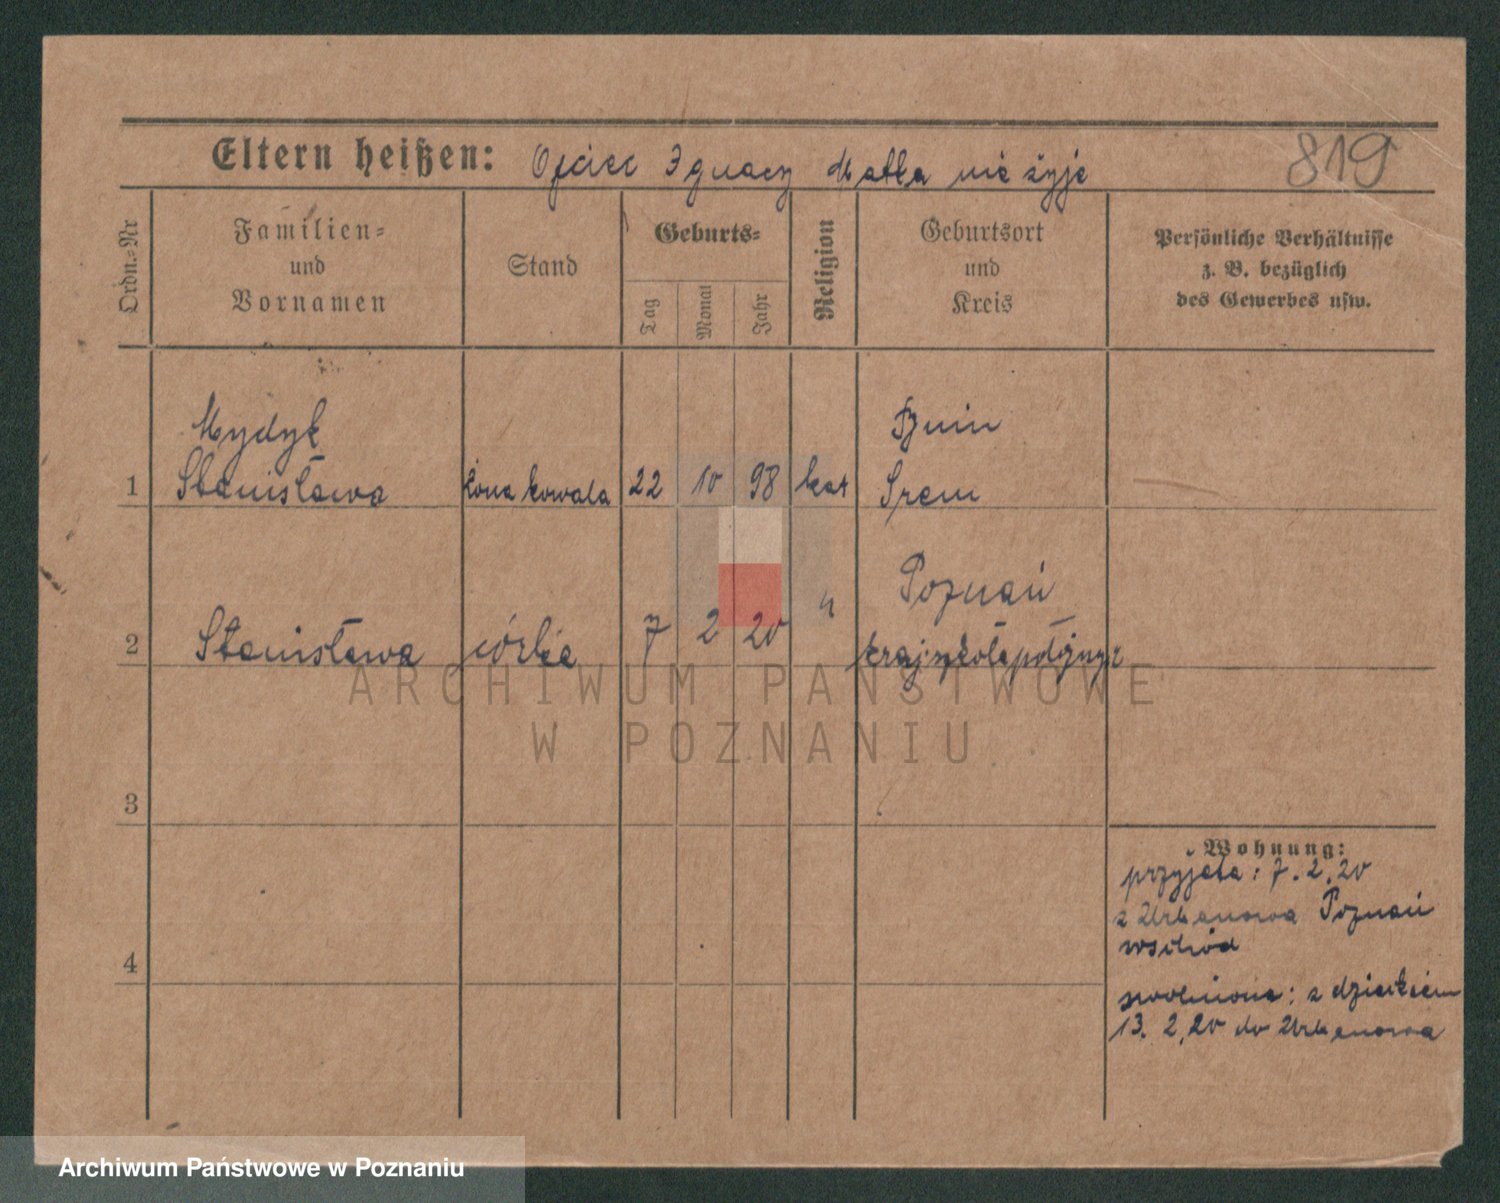 Eltern heißen: Ojciec Ignacy Matka nie żyje
819
Ordn.-Nr
Familien-
und
Vornamen
Stand
Geburts-
Tag
Monat
Jahr
Religion
Geburtsort
und
Kreis
Persönliche Verhältnisse
z. B. bezüglich
des Gewerbes usw.
Mydyk
Bnin
1 Stanisława żona kowala 22 10 98 kat Śrem
Poznań
2 Stanisława córka 7 2 20 " kraj. szkoła położnych
ARCHIWUM PAŃSTWOWE
W POZNANIU
3
Wohnung:
przyjęta: 7.2.20
z Urbanowa Poznań
wschód
4
zwolniona: z dzieckiem
13.2.20 do Urbanowa
Archiwum Państwowe w Poznaniu